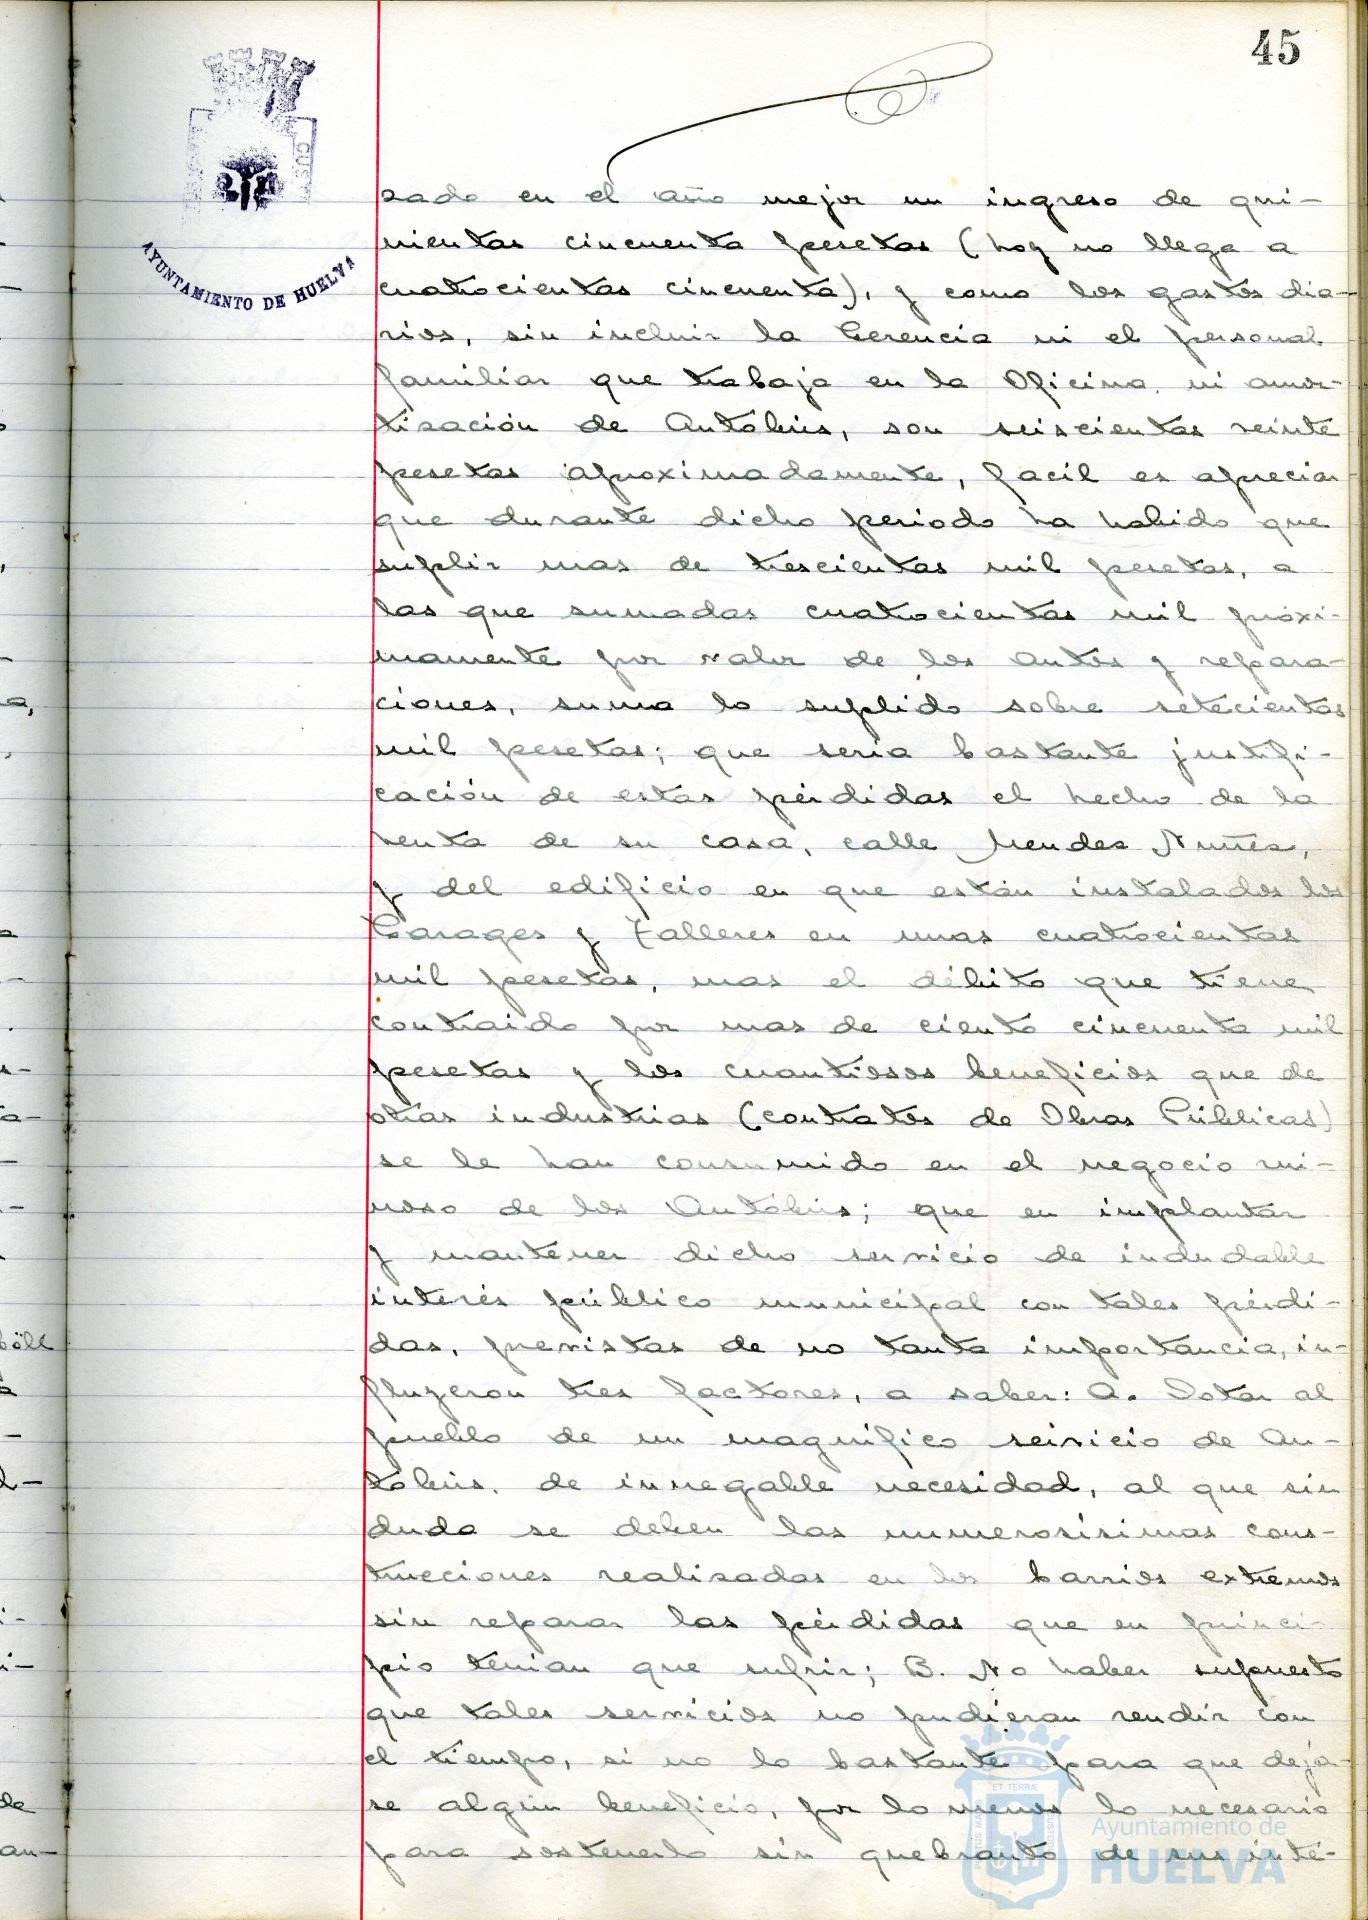 45
AYUNTAMIENTO DE HUELVA
sado en el año mejor un ingreso de qui-
nientas cincuenta pesetas (hoy no llega a
cuatrocientas cincuenta), y como los gastos dia-
rios, sin incluir la Gerencia ni el personal
familiar que trabaja en la Oficina ni amor-
tización de Autobús, son seiscientas veinte
pesetas aproximadamente, facil es apreciar
que durante dicho periodo ha habido que
suplir mas de trescientas mil pesetas, a
las que sumadas cuatrocientas mil próxi-
mamente por valor de los autos y repara-
ciones, suma lo suplido sobre setecientas
mil pesetas; que seria bastante justifi-
cación de estas pérdidas el hecho de la
venta de su casa, calle Mendez Nuñez,
y del edificio en que están instalados los
Garages y Talleres en unas cuatrocientas
mil pesetas, mas el débito que tiene
contraido por mas de ciento cincuenta mil
pesetas y los cuantiosos beneficios que de
otras industrias (contratos de Obras Públicas)
se le han consumido en el negocio rui-
noso de los Autobús; que en implantar
y mantener dicho servicio de indudable
interés público municipal con tales pérdi-
das, previstas de no tanta importancia, in-
fluyeron tres factores, a saber: A. Dotar al
pueblo de un magnifico servicio de Au-
tobús. de innegable necesidad, al que sin
duda se deben las numerosisimas cons-
trucciones realizadas en los barrios extremos
sin reparar las pérdidas que en princi-
pio tenian que sufrir; B. No haber supuesto
que tales servicios no pudieran rendir con
el tiempo, si no lo bastante para que deja-
se algún beneficio, por lo menos lo necesario
para sostenerlo sin quebranto de sus inte-
Ayuntamiento de
HUELVA